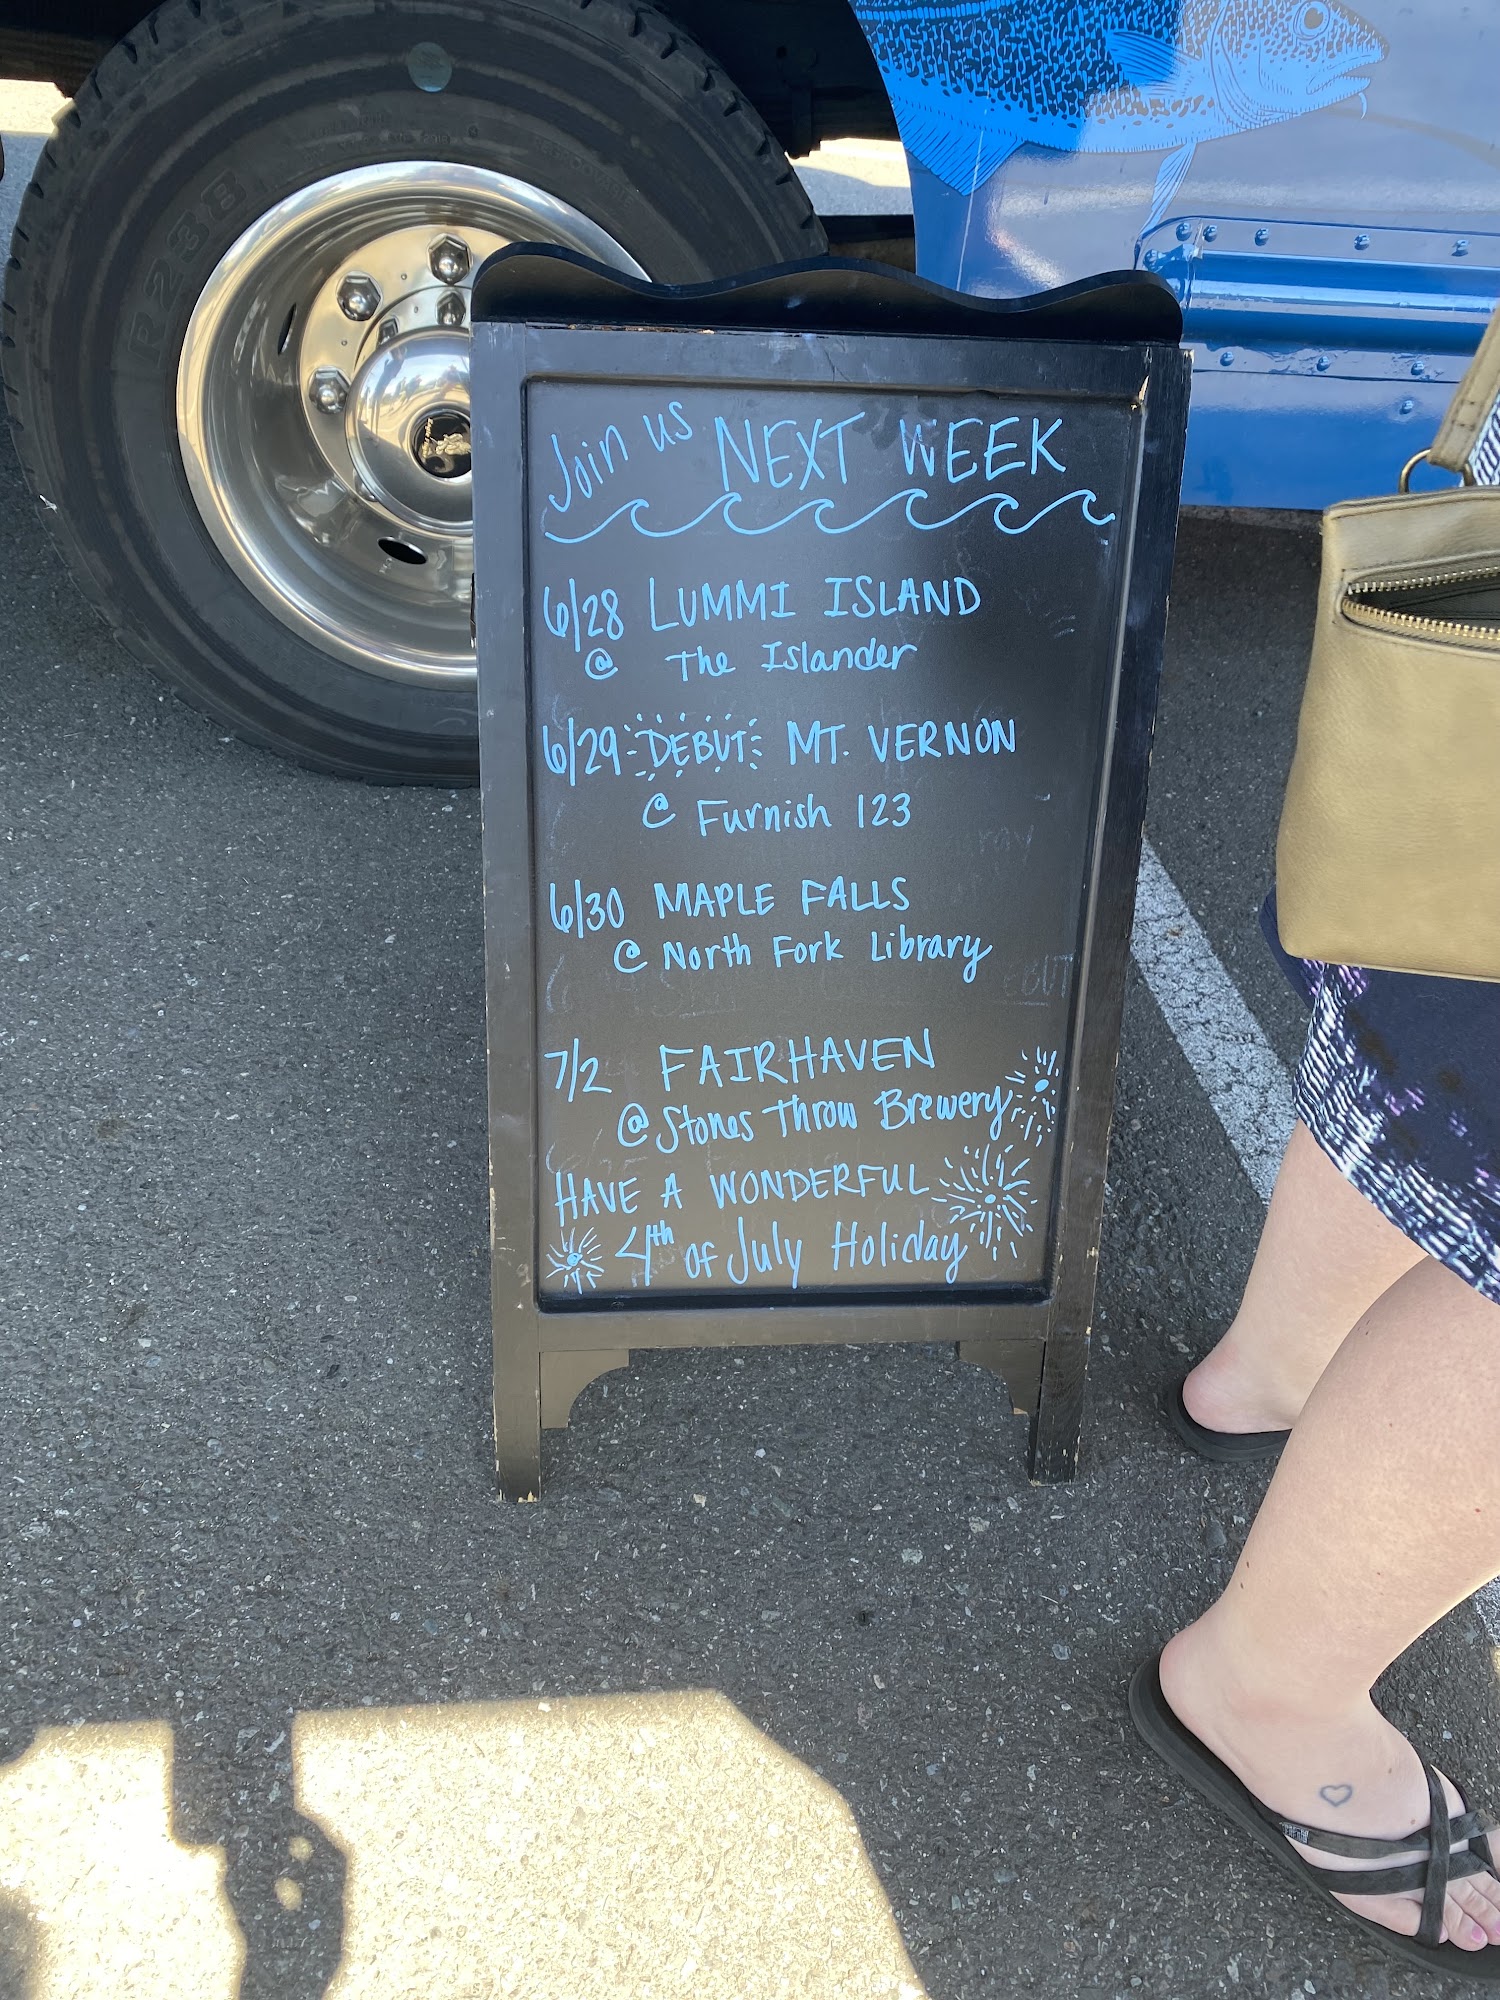 Join us NEXT WEEK
6/28 LUMMI ISLAND
@ The Islander
6/29 DEBUT MT. VERNON
@ Furnish 123
6/30 MAPLE FALLS
@ North Fork Library
7/2 FAIRHAVEN
@ Stones Throw Brewery
HAVE A WONDERFUL
4th of July Holiday
R238